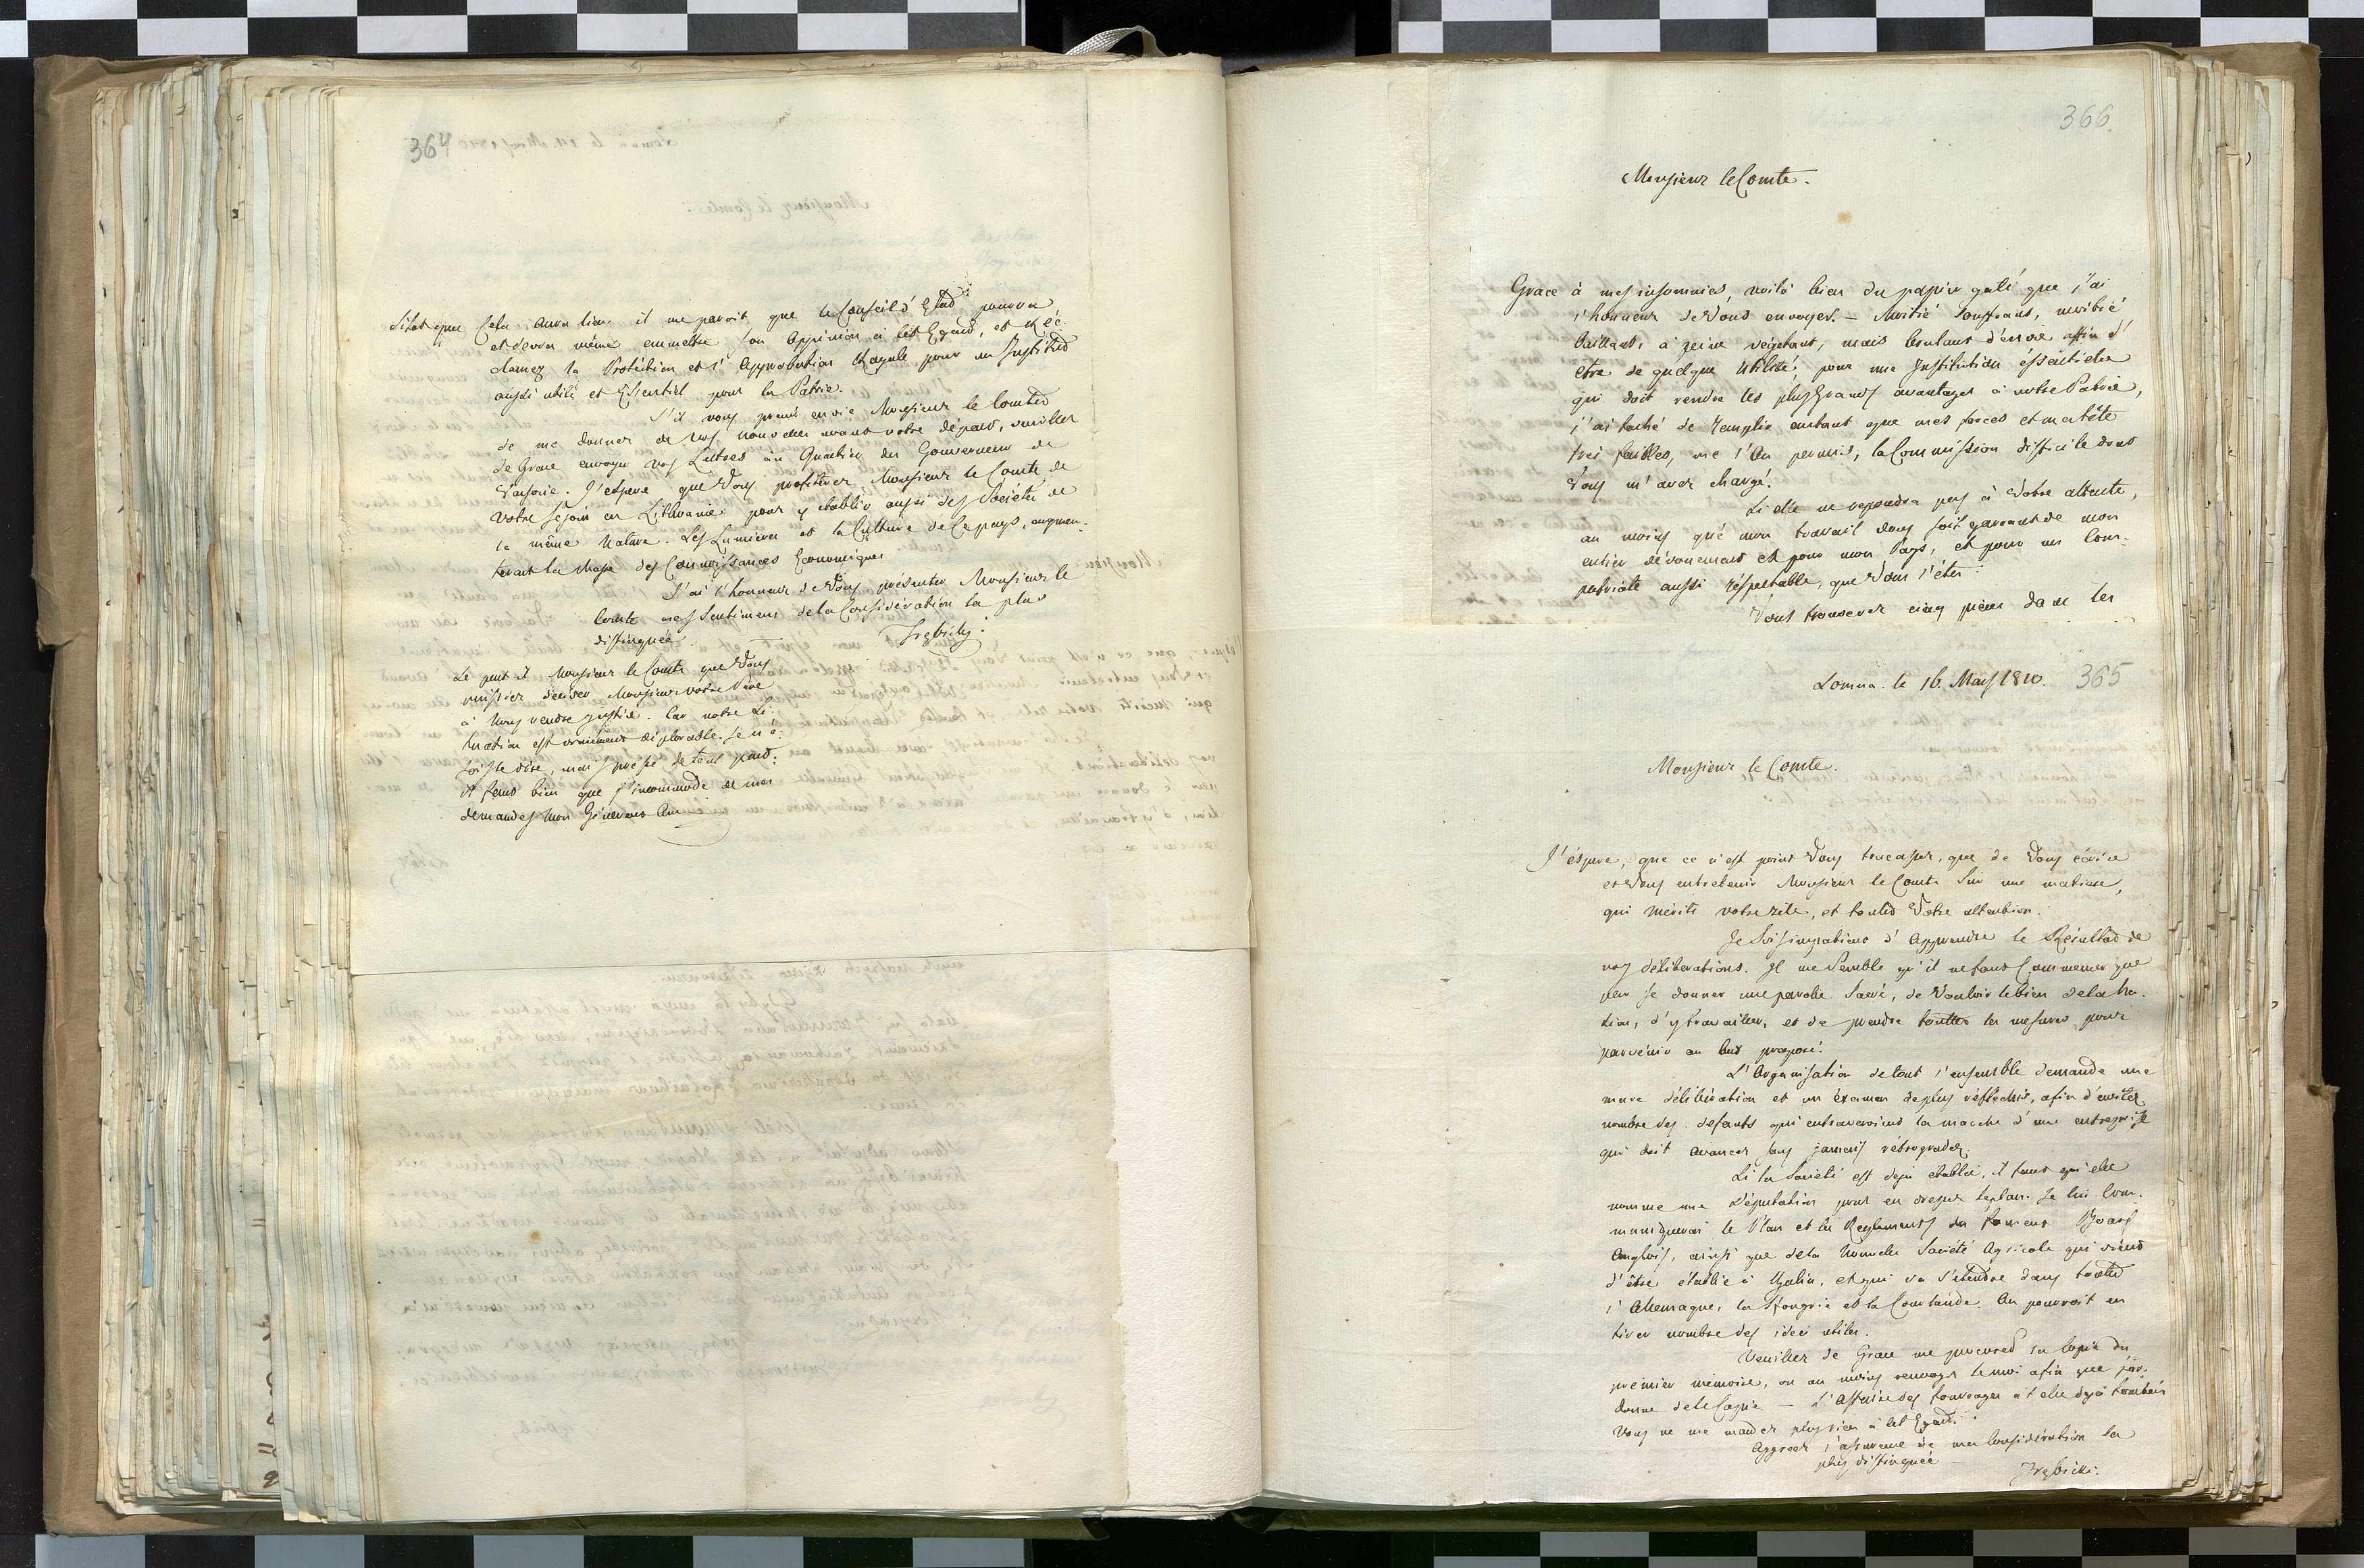 364
Sitot que Cela aura lieu il me paroit que le Conseil d'Etad pourra
et devra même emmettre son Oppinion à cet Egard, et Réc-
lamez la Protection et l'Approbation Royale pour un Institud
aussi utile et Essentiel pour la Patrie.
S'il vous prend envie Monsieur le Comted
de me donner de vos nouvelles avant votre départ, veuillez
de Grace envoyer vos Lettres au Quartier du Gouverneur de
Varsovie. J'espere que Vous profiterez Monsieur le Comte de
votre séjour en Lithuanie pour y etablir aussi des Société de
la même Nature. Les Lumieres et la Culture de Ce pays, augmen-
terait la Masse des Connoissances Economiques
J'ai l'honneur de Vous présenter Monsieur le
Comte mes Sentimens de la Considération la plus
distinguée.
Trębicky:
Se peut il Monsieur le Comte que Vous
puissiez decider Monsieur votre Pere
à nous rendre justice. Car notre Si-
tuation est vraiment déplorable. Je n'o-
sois le dire, mais pressé de tout part:
Je sens bien que j'incommode de mes
demandes mon Généreux Ami
366.
Monsieur le Comte.
Grace à mes insomnies, voilà bien du papier gaté que j'ai
l'honneur de Vous envoyer. — Moitié Souffrant, moitié
Vaillant, à peine végétant, mais brulant d'envie affin d'
etre de quelque Utilité, pour une Institution éssentielle
qui doit rendre les plus Grands avantages à notre Patrie,
j'ai taché de remplir autant que mes forces et ma tête
tres faibles, me l'ont permis, la Commission difficile dont
Vous m'avez chargé.
Si elle ne repondra pas à Votre attente,
au moins que mon travail vous soit garant de mon
entier dévouement et pour mon Pays, et pour un Com-
patriote aussi réspectable, que Vous l'étes.
Vous trouverez cinq pieces dans les
Lomna. le 16. Mars 1810. 365
Monsieur le Comte.
J'éspere, que ce n'est point Vous tracasser, que de Vous écrire
et Vous entretenir Monsieur le Comte Sur une matiere,
qui mérite votre zele, et touted Votre attention.
Je Suis impatient d'apprendre le Résultad de
vos déliberations. Il me Semble qu'il ne faut Commencer que
par se donner une parole Sacré, de Vouloir le bien de la Na-
tion, d'y travailler, et de prendre touttes les mesures pour
parvenir au but proposé.
L'Organisation de tout l'ensemble demande une
mure délibération et un éxamen de plus réflechis, afin d'eviter
nombre des defauts qui entraveroient la marche d'une entreprise
qui doit avancer sans jamais rétrograder.
Si la Societé est deja etablie, il faut qu'elle
nomme une Députation pour en dresser le plan. Je lui Com-
muniquerai le Plan et les Reglements du fameux Board
Anglois, ainsi que de la Nouvelle Société Agricole qui vient
d'être établie à, et qui va s'etendre dans touted
l'Allemagne, la Hongrie et la Courlande. On pourroit en
tirer nombre des idées utiles.
Veuillez de Grace me procured la Copie du
premier mémoire, ou au moins renvoyer le moi afin que j'or-
donne de le Copier — L'Affaire des fourrages a t elle deja tombée
Vous ne me mandez plus rien à cet Egard.
Aggréez l'assurance de ma Considération la
plus distinguée —
Trębicki.